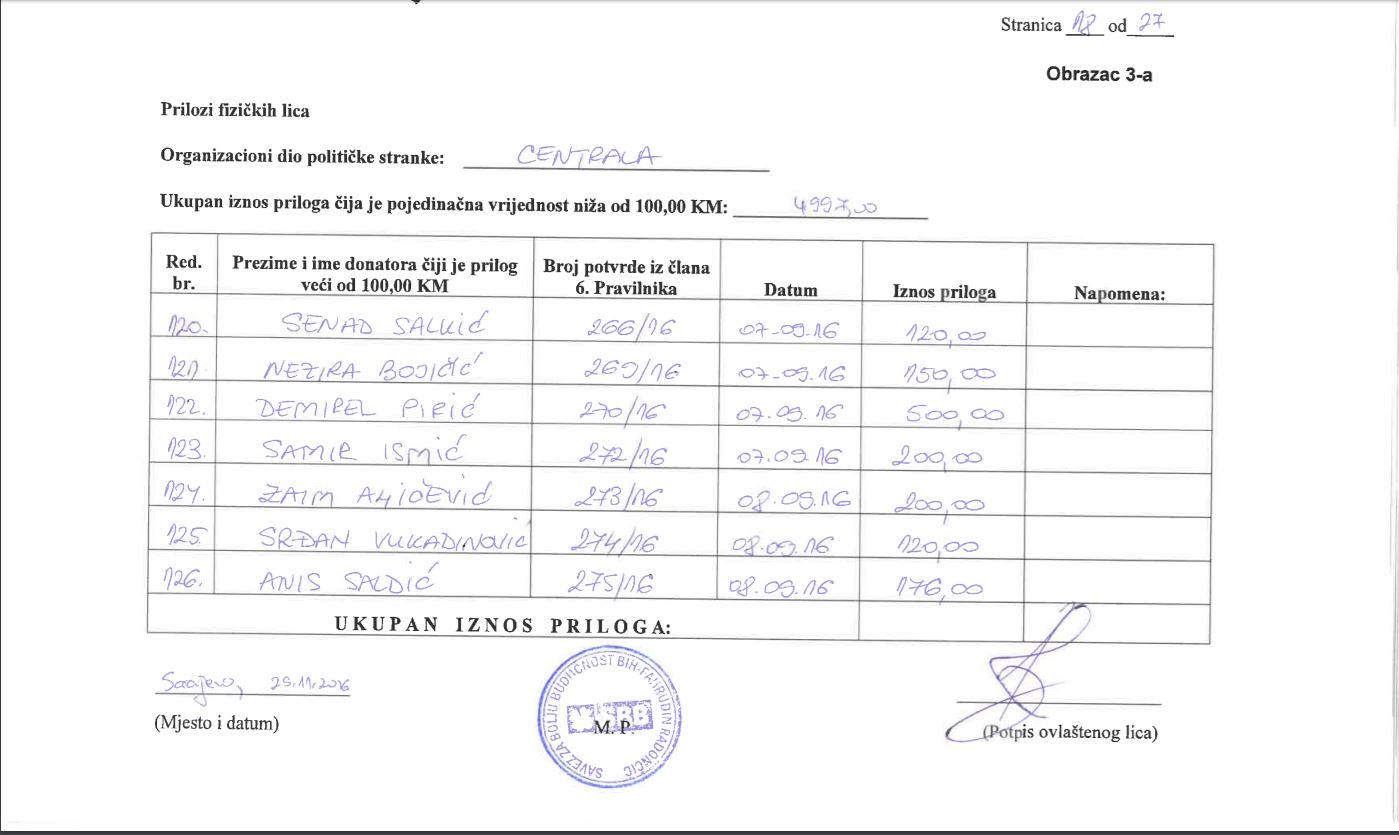 Stranica 18 od 27
Obrazac 3-a
Prilozi fizičkih lica
Organizacioni dio političke stranke: CENTRALA
Ukupan iznos priloga čija je pojedinačna vrijednost niža od 100,00 KM: 4997,00
Red. br. Prezime i ime donatora čiji je prilog veći od 100,00 KM Broj potvrde iz člana 6. Pravilnika Datum Iznos priloga Napomena:
120. SENAD SALKIĆ 266/16 07-09.16 120,00
121. NEZIRA BOJIČIĆ 269/16 07-09.16 150,00
122. DEMIREL PIRIĆ 270/16 07.09.16 500,00
123. SAMIR ISMIĆ 272/16 07.09.16 200,00
124. ZAIM 273/16 08.09.16 200,00
125. SRĐAN VUKADINOVIĆ 274/16 08.09.16 120,00
126. ANIS SALDIĆ 275/16 08.09.16 176,00
UKUPAN IZNOS PRILOGA:
Sarajevo, 25.11.2016
(Mjesto i datum)
SAVEZ ZA BOLJU BUDUĆNOST BIH-FAHRUDIN RADONČIĆ
SBB
M. P.
(Potpis ovlaštenog lica)